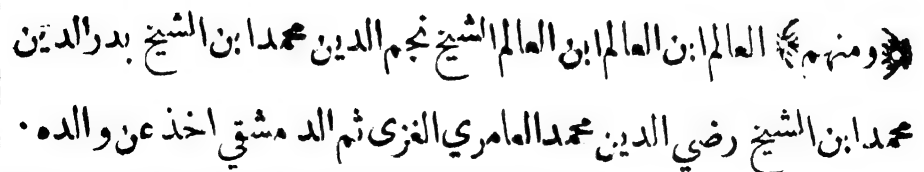 ﴿ومنهم﴾ العالم ابن العالم ابن العالم الشيخ نجم الدين محمد ابن الشيخ بدر الدين
محمد ابن الشيخ رضي الدين محمد العامري الغزى ثم الدمشقي اخذ عن والده ·